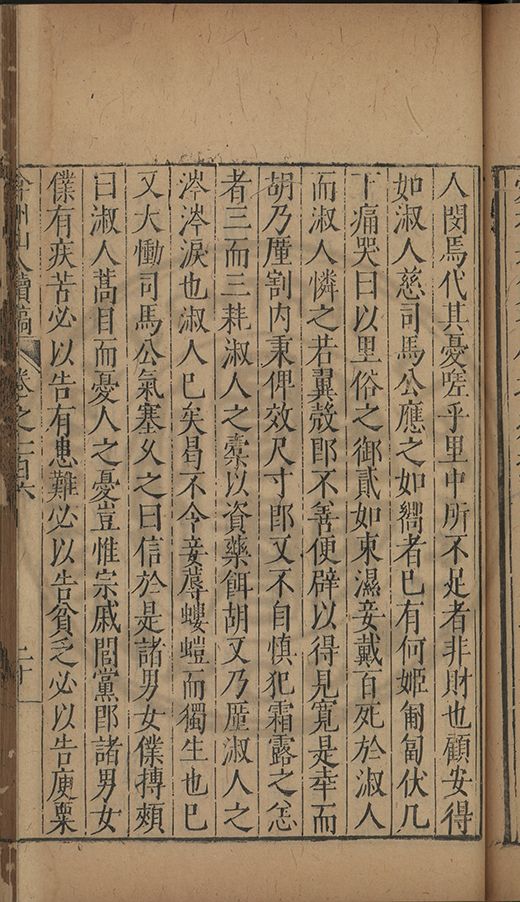 人閔焉代其憂嗟乎里中所不足者非財也顧安得
如淑人慈司馬公應之如嚮者已有何姬匍匐伏几
下痛哭曰以里俗之御貳如東濕妾戴百死於淑人
而淑人憐之若翼殼即不善便辟以得見寬是幸而
胡乃厪割内秉俾效尺寸即又不自慎犯霜露之恙
者三而三耗淑人之橐以資藥餌胡又乃厪淑人之
涔涔淚也淑人已矣曷不令妾蓐螻螘而獨生也已
又大慟司馬公氣塞久之曰信於是諸男女僕摶頰
曰淑人蒿目而憂人之憂豈惟宗戚閭黨即諸男女
僕有疾苦必以告有患難必以告貧乏必以告庾粟
弇州山人續稿 卷之一百六 二十